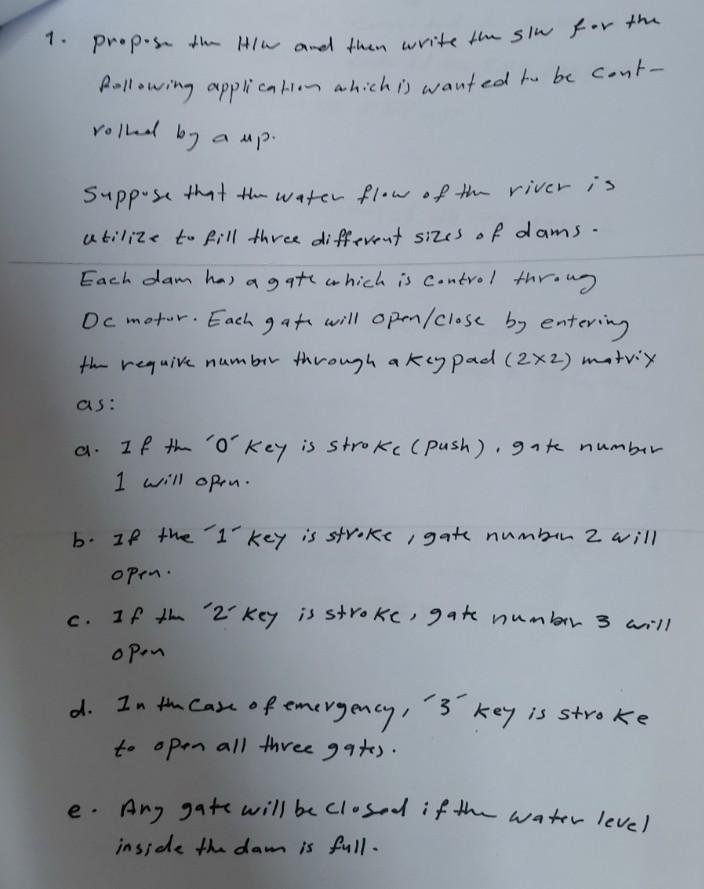 1. propose the H/W and then write the S/W for the
following application which is wanted to be cont-
rolled by a μp.
Suppose that the water flow of the river is
utilize to fill three different sizes of dams.
Each dam has a gate which is control throug
Dc motor. Each gate will open/close by entering
the require number through a keypad (2x2) matrix
as:
a. If the "0" key is stroke (push), gate number
1 will open.
b. If the "1" key is stroke, gate number 2 will
open.
c. If the "2" key is stroke, gate number 3 will
open
d. In the case of emergency, "3" key is stroke
to open all three gates.
e. Any gate will be closed if the water level
inside the dam is full.